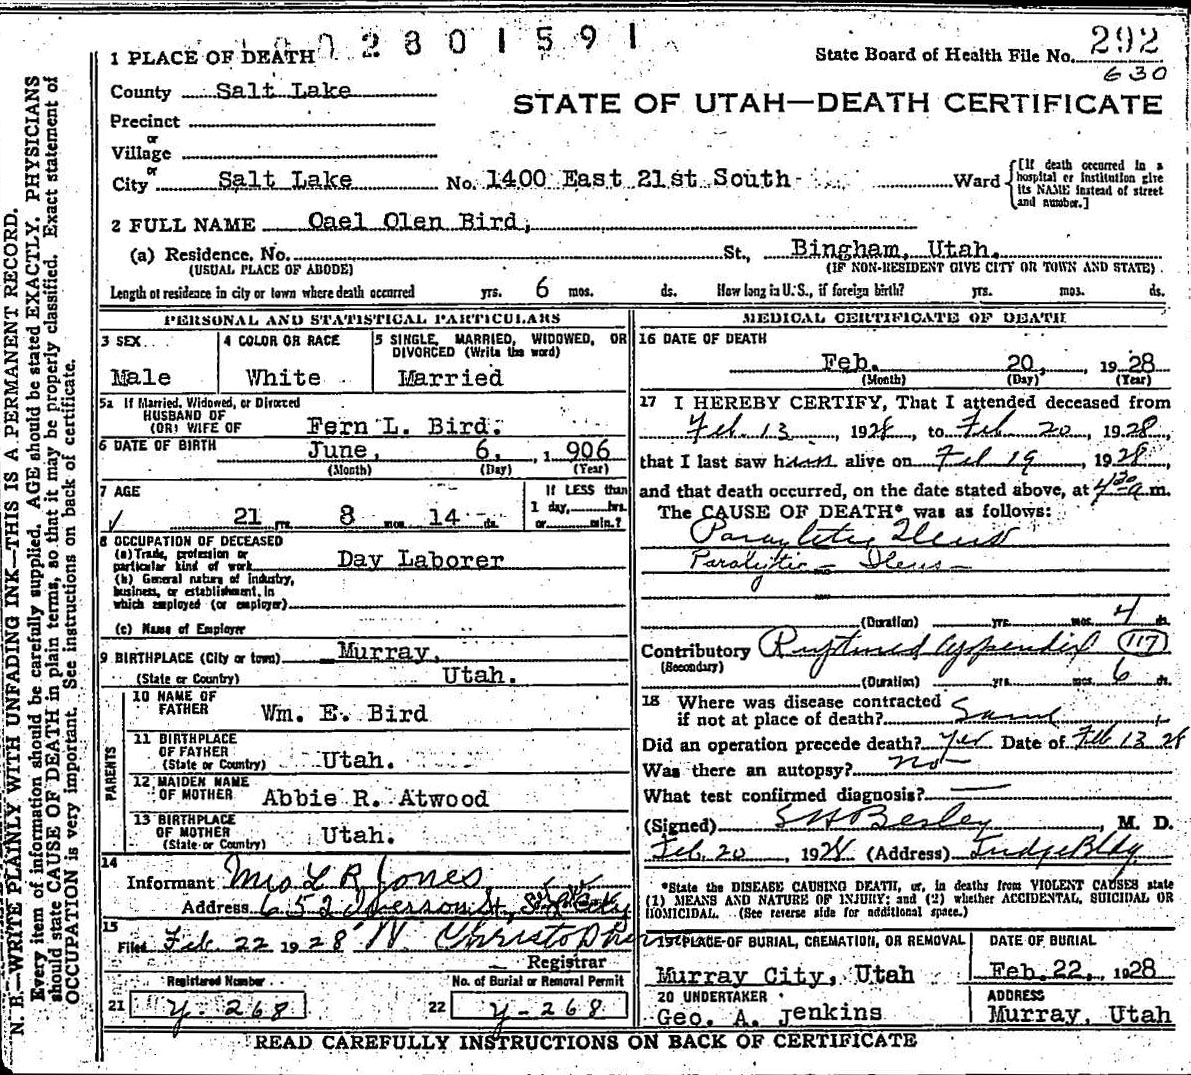 2801591
State Board of Health File No. 292
630
1 PLACE OF DEATH
County Salt Lake
STATE OF UTAH—DEATH CERTIFICATE
Precinct
or
Village
or
City Salt Lake No. 1400 East 21st South Ward
[If death occurred in a hospital or institution give its NAME instead of street and number.]
2 FULL NAME Oael Olen Bird,
(a) Residence, No. St., Bingham, Utah.
(USUAL PLACE OF ABODE) (IF NON-RESIDENT GIVE CITY OR TOWN AND STATE)
Length of residence in city or town where death occurred yrs. 6 mos. ds. How long in U.S., if foreign birth? yrs. mos. ds.
PERSONAL AND STATISTICAL PARTICULARS
3 SEX
Male
4 COLOR OR RACE
White
5 SINGLE, MARRIED, WIDOWED, OR
DIVORCED (Write the word)
Married
5a If Married, Widowed, or Divorced
HUSBAND OF
(OR) WIFE OF Fern L. Bird.
6 DATE OF BIRTH June, 6, 1906
(Month) (Day) (Year)
7 AGE
21 yrs. 8 mos. 14 ds.
If LESS than
1 day, hrs.
or min.?
8 OCCUPATION OF DECEASED
(a) Trade, profession or
particular kind of work Day Laborer
(b) General nature of industry,
business, or establishment, in
which employed (or employer)
(c) Name of Employer
9 BIRTHPLACE (City or town) Murray,
(State or Country) Utah.
PARENTS
10 NAME OF
FATHER Wm. E. Bird
11 BIRTHPLACE
OF FATHER
(State or Country) Utah.
12 MAIDEN NAME
OF MOTHER Abbie R. Atwood
13 BIRTHPLACE
OF MOTHER
(State or Country) Utah.
14
Informant Mrs L R Jones,
Address 652 St,
15
Filed Feb. 22 1928 W Christopher
Registrar
Registered Number
21 Y-268
No. of Burial or Removal Permit
22 Y-268
MEDICAL CERTIFICATE OF DEATH
16 DATE OF DEATH
Feb. 20, 1928
(Month) (Day) (Year)
17 I HEREBY CERTIFY, That I attended deceased from
Feb. 13, 1928, to Feb 20, 1928,
that I last saw him alive on Feb 19, 1928,
and that death occurred, on the date stated above, at 4 30 a.m.
The CAUSE OF DEATH* was as follows:
Paraylitic Ileus
Paralytic — Ileus —
(Duration) yrs. mos. 4 ds.
Contributory Ruptured appendix 117
(Secondary)
(Duration) yrs. mos. 6 ds.
18 Where was disease contracted
if not at place of death? Same
Did an operation precede death? Yes Date of Feb 13 28
Was there an autopsy? no
What test confirmed diagnosis?
(Signed) S H Besley, M. D.
Feb. 20, 1928 (Address) Judge Bldg
*State the DISEASE CAUSING DEATH, or, in deaths from VIOLENT CAUSES state
(1) MEANS AND NATURE OF INJURY; and (2) whether ACCIDENTAL, SUICIDAL OR
HOMICIDAL. (See reverse side for additional space.)
19 PLACE OF BURIAL, CREMATION, OR REMOVAL
Murray City, Utah
DATE OF BURIAL
Feb. 22, 1928
20 UNDERTAKER
Geo. A. Jenkins
ADDRESS
Murray, Utah
READ CAREFULLY INSTRUCTIONS ON BACK OF CERTIFICATE
N. B.—WRITE PLAINLY WITH UNFADING INK—THIS IS A PERMANENT RECORD.
Every item of information should be carefully supplied. AGE should be stated EXACTLY. PHYSICIANS
should state CAUSE OF DEATH in plain terms, so that it may be properly classified. Exact statement of
OCCUPATION is very important. See instructions on back of certificate.